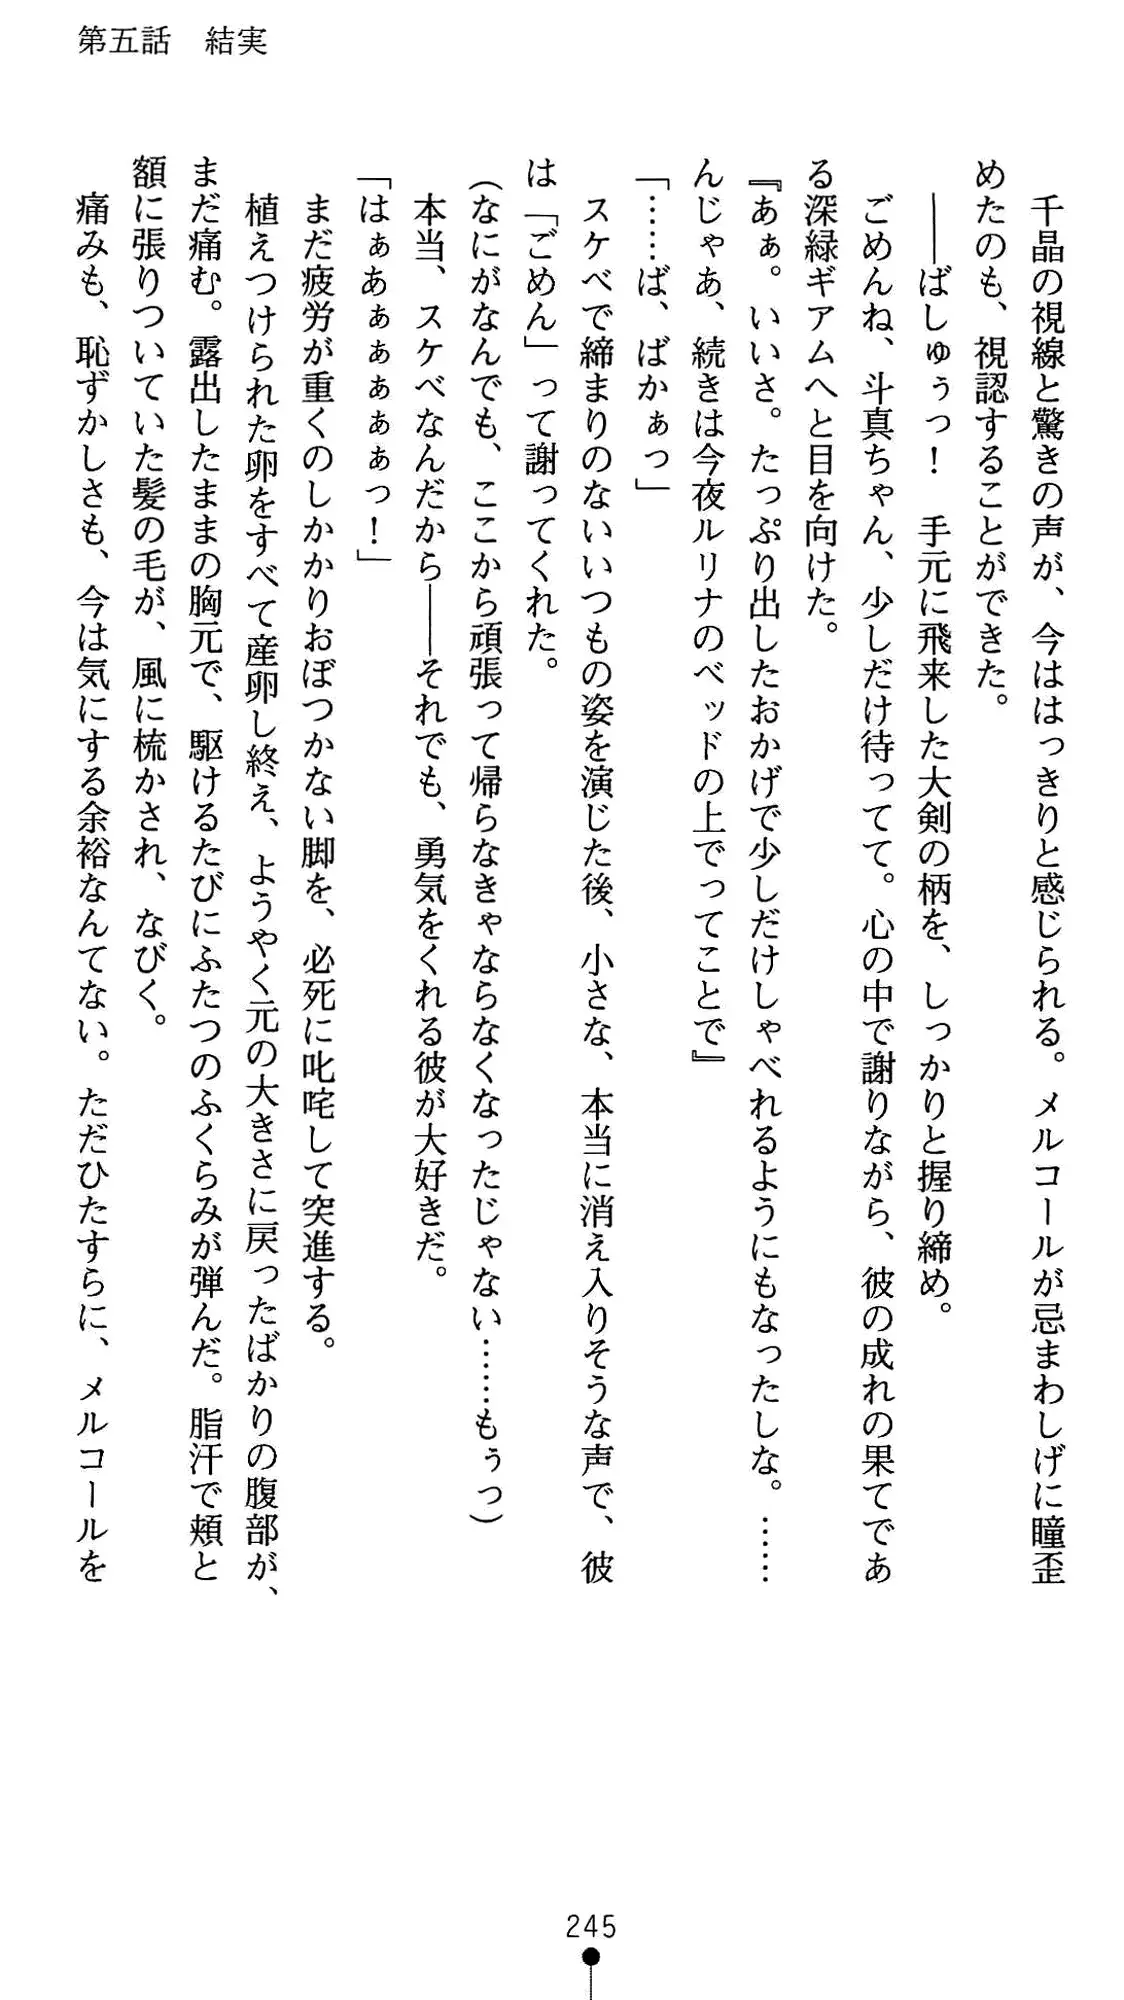 第五話　結実
　千晶の視線と驚きの声が、今ははっきりと感じられる。メルコールが忌まわしげに瞳歪
めたのも、視認することができた。
　――ばしゅぅっ！　手元に飛来した大剣の柄を、しっかりと握り締め。
　ごめんね、斗真ちゃん、少しだけ待ってて。心の中で謝りながら、彼の成れの果てであ
る深緑ギアムへと目を向けた。
『あぁ。いいさ。たっぷり出したおかげで少しだけしゃべれるようにもなったしな。……
んじゃあ、続きは今夜ルリナのベッドの上でってことで』
「……ば、ばかぁっ」
　スケベで締まりのないいつもの姿を演じた後、小さな、本当に消え入りそうな声で、彼
は「ごめん」って謝ってくれた。
（なにがなんでも、ここから頑張って帰らなきゃならなくなったじゃない……もぅっ）
　本当、スケベなんだから――それでも、勇気をくれる彼が大好きだ。
「はぁあぁぁぁぁぁっ！」
　まだ疲労が重くのしかかりおぼつかない脚を、必死に叱咤して突進する。
　植えつけられた卵をすべて産卵し終え、ようやく元の大きさに戻ったばかりの腹部が、
まだ痛む。露出したままの胸元で、駆けるたびにふたつのふくらみが弾んだ。脂汗で頬と
額に張りついていた髪の毛が、風に梳かされ、なびく。
　痛みも、恥ずかしさも、今は気にする余裕なんてない。ただひたすらに、メルコールを
245